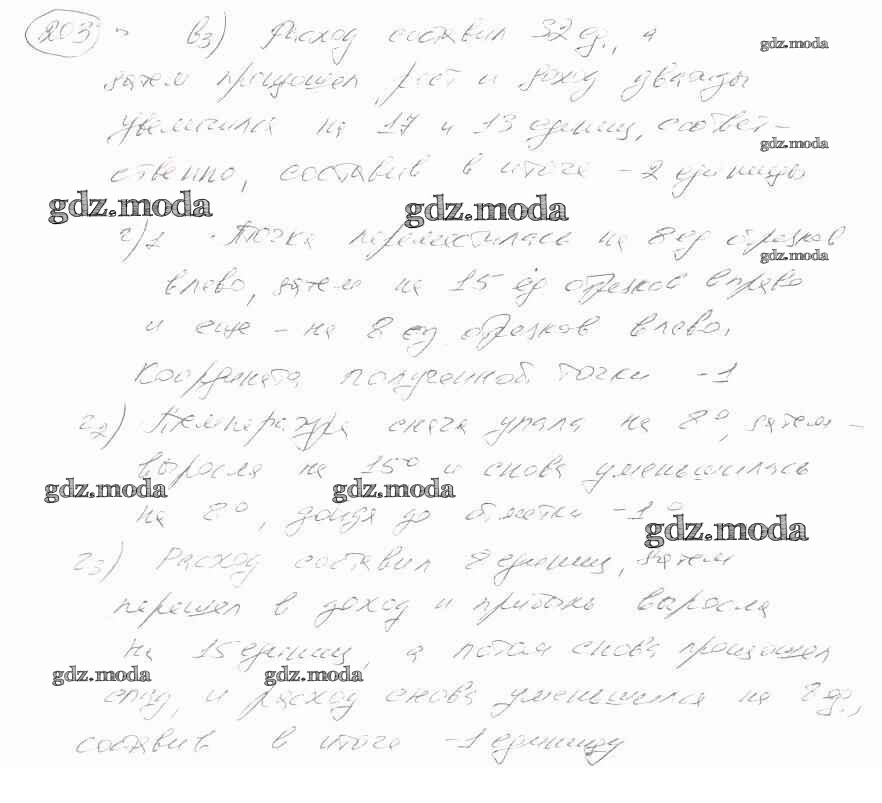 203 в3) Расход составил 32 ед., а
gdz.moda
затем произошел рост и доход дважды
увеличился на 17 и 13 единиц, соответ-
gdz.moda
ственно, составив в итоге -2 единицы
gdz.moda gdz.moda
г)1 Точка переместилась на 8 ед отрезков
gdz.moda
влево, затем на 15 ед отрезков вправо
и еще - на 8 ед отрезков влево.
Координата полученной точки -1
г2) Температура снача упала на 8°, затем -
выросла на 15° и снова уменьшилась
gdz.moda gdz.moda
на 8°, дойдя до отметки -1°
gdz.moda
г3) Расход составил 8 единиц, затем
перешел в доход и прибыль выросла
на 15 единиц, а потом снова произошел
gdz.moda gdz.moda
спад, и расход снова уменьшился на 8 ед.,
составив в итоге -1 единицу